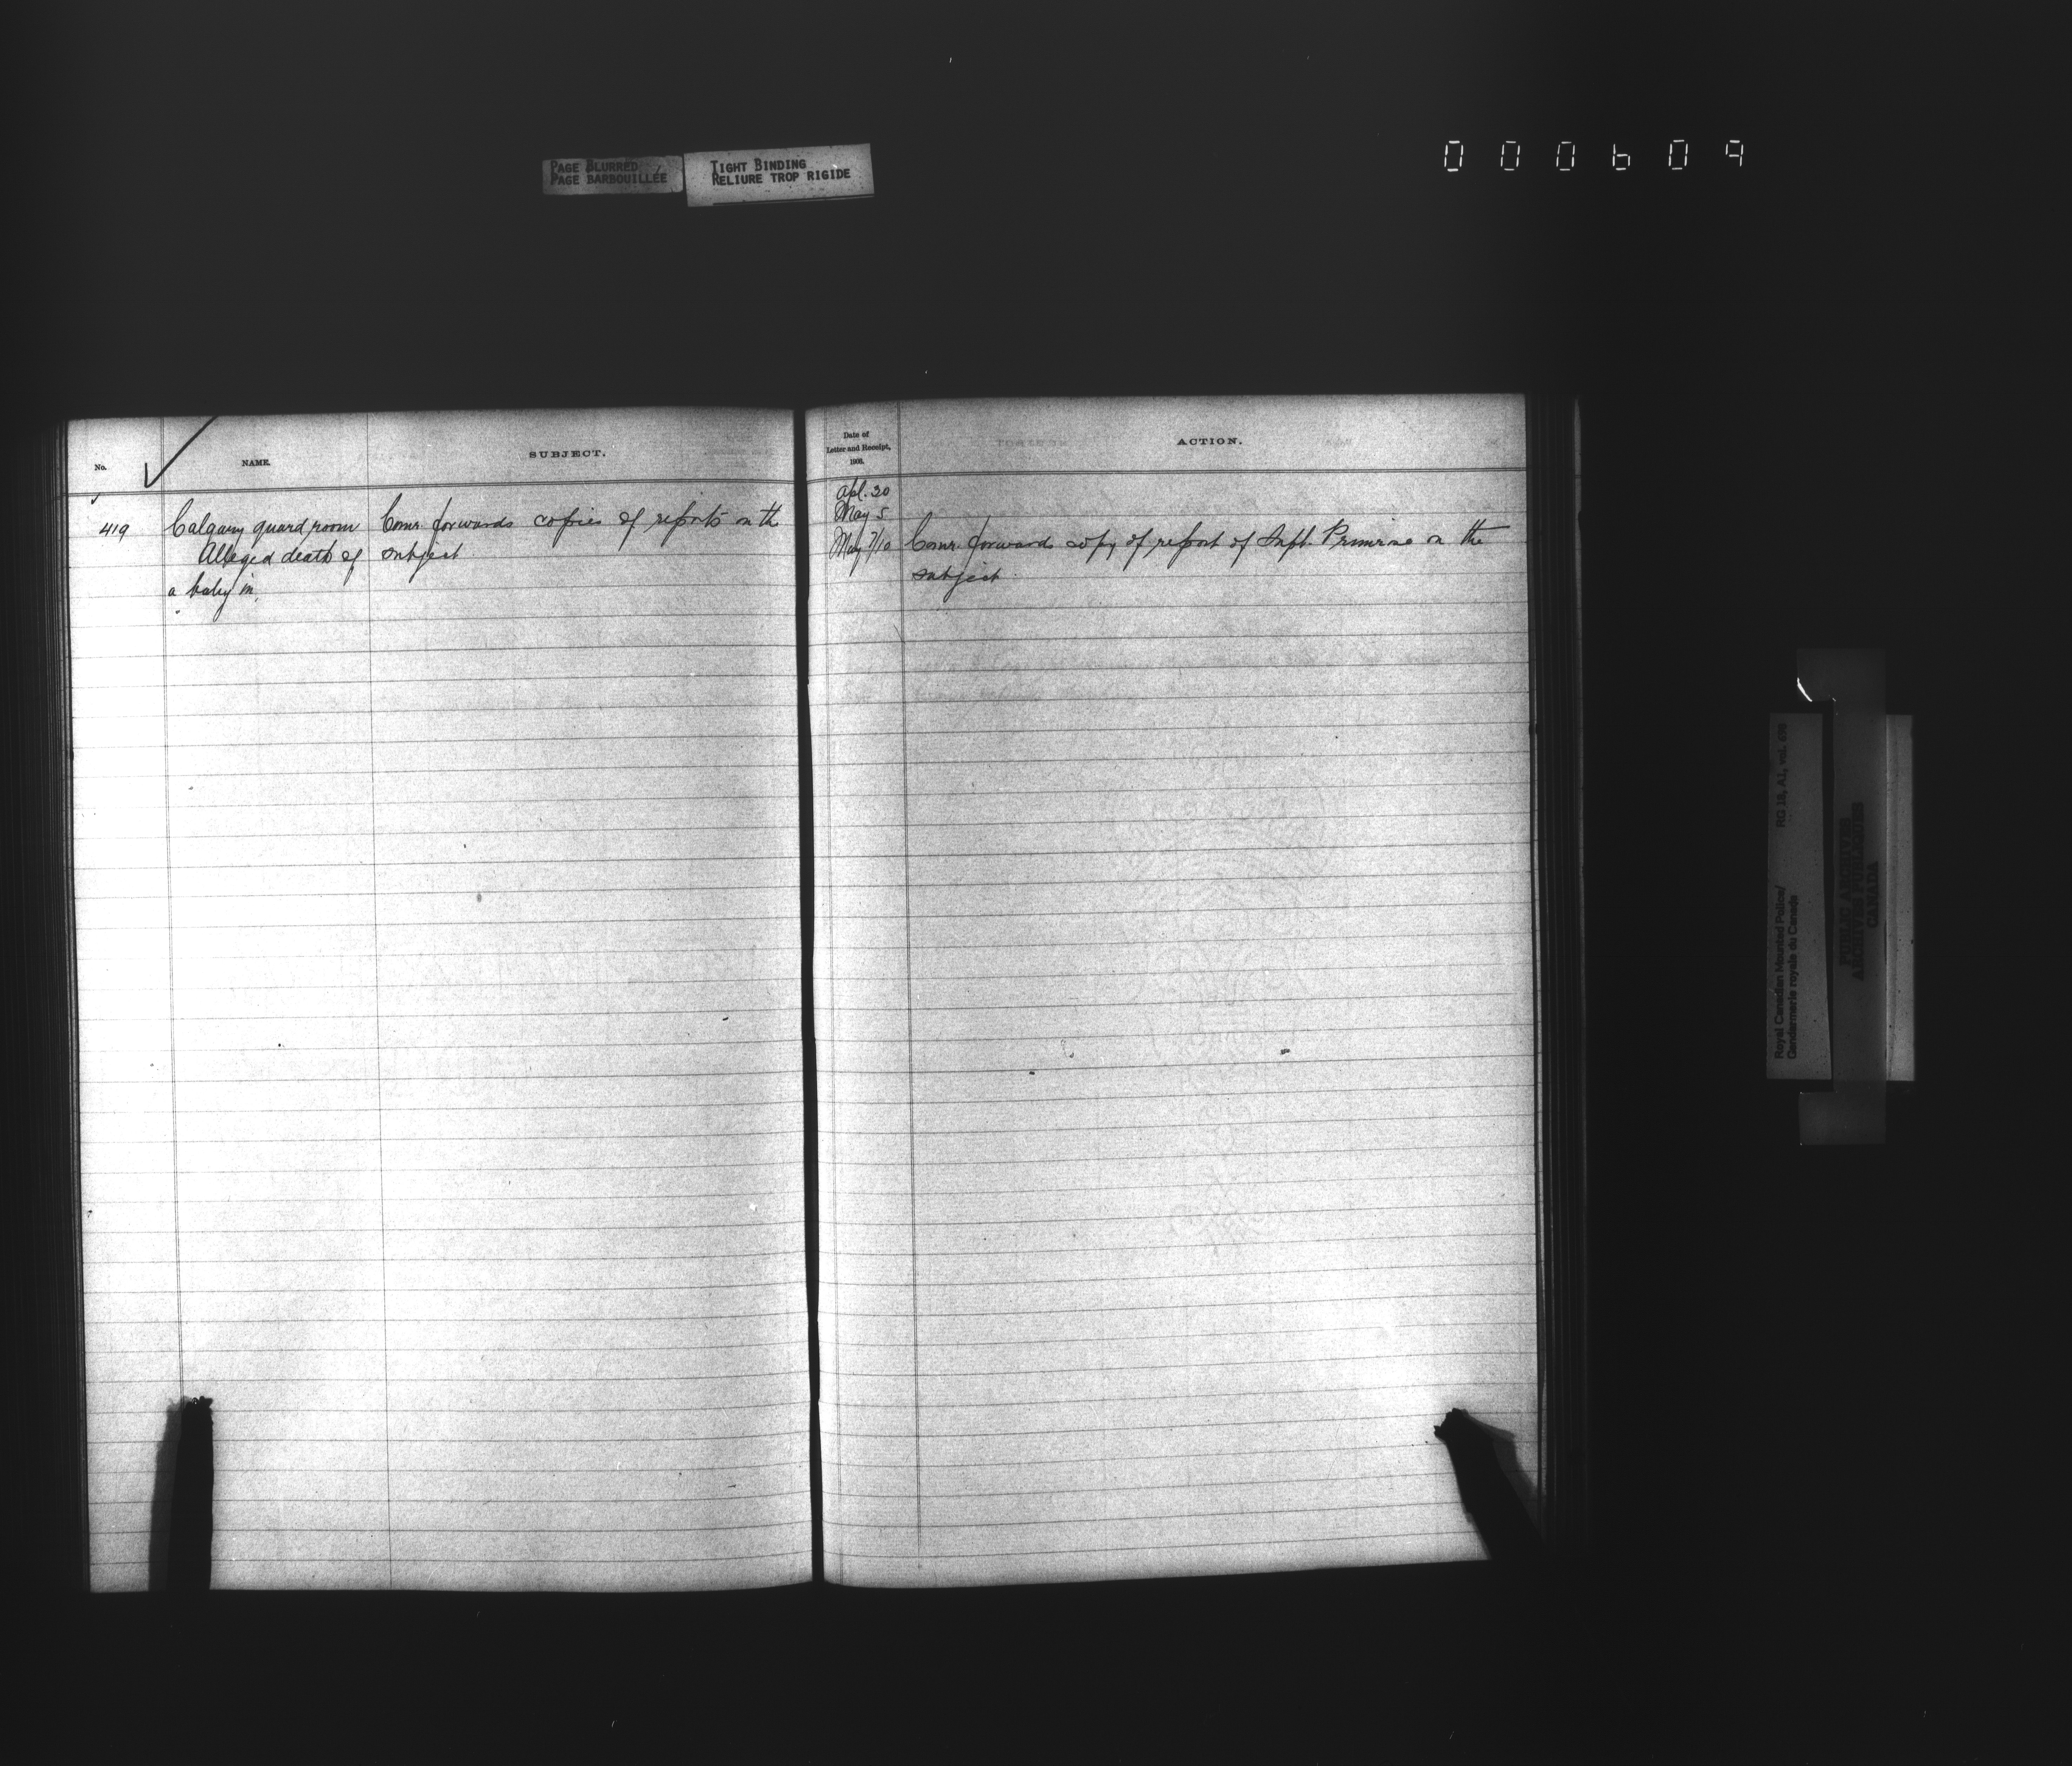 PAGE BLURRED
PAGE BARBOUILLÉE
TIGHT BINDING
RELIURE TROP RIGIDE
000609
No.
NAME.
SUBJECT.
419
Calgary guard room
Alleged death of
a baby in.
Comr. forwards copies of reports on the
subject.
Date of
Letter and Receipt,
1908.
ACTION.
Apl. 30
May 5
May 7/10
Comr. forwards copy of report of Supt. Primrose on the
subject.
Royal Canadian Mounted Police/
Gendarmerie royale du Canada
RG 18, A1, vol.
PUBLIC ARCHIVES
ARCHIVES PUBLIQUES
CANADA